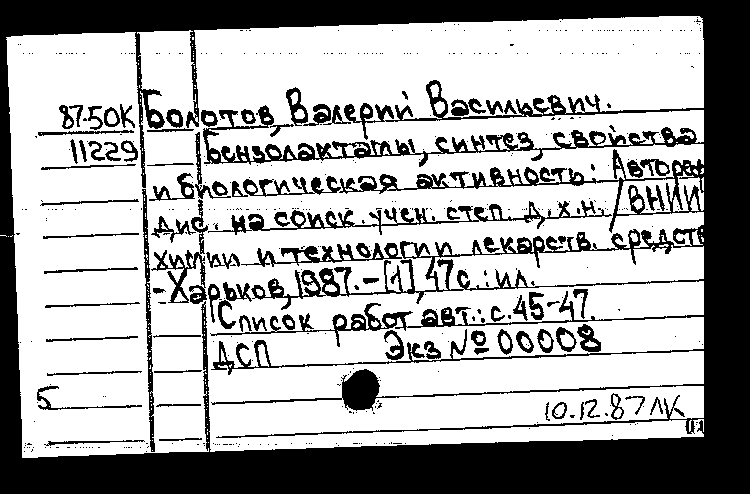 87-50К Болотов, Валерий Васильевич.
11229 Бензолактамы, синтез, свойства
и биологическая активность: Автореф
дис. на соиск. учен. степ. д.х.н. / ВНИИ
химии и технологии лекарств. средств
-Харьков, 1987.-[1], 47с.: ил.
Список работ авт.: с.45-47.
ДСП Экз № 00008
5
10.12.87 ЛК